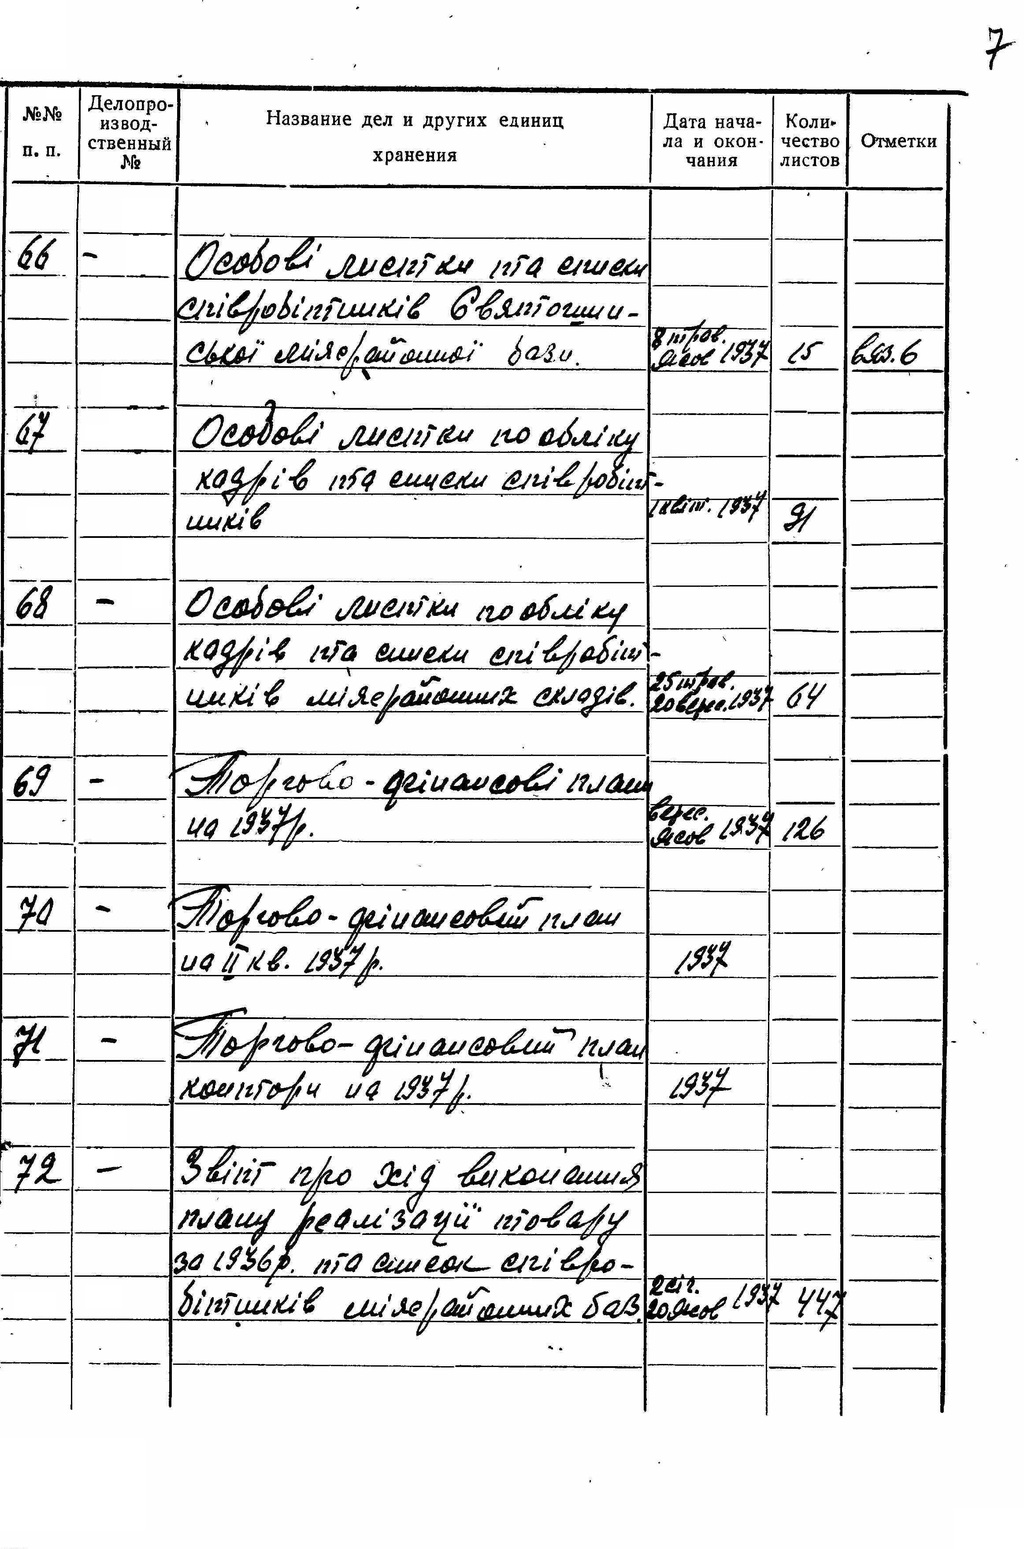 7
№№ п. п.
Делопро-
извод-
ственный
№
Название дел и других единиц
хранения
Дата нача-
ла и окон-
чания
Коли-
чество
листов
Отметки
66 - Особові листки та списки
співробітників Святошин-
ської міжрайонної бази. 8 трав. жов 1937 15 вяз. 6
67 Особові листки по обліку
кадрів та списки співробіт-
ників 1 квіт. 1937 91
68 - Особові листки по обліку
кадрів та списки співробіт-
ників міжрайонних складів. 25 трав. 20 верес. 1937 64
69 - Торгово-фінансові плани
на 1937 р. верес. жов 1937 126
70 - Торгово-фінансовий план
на II кв. 1937 р. 1937
71 - Торгово-фінансовий план
контори на 1937 р. 1937
72 - Звіт про хід виконання
плану реалізації товару
за 1936 р. та список співро-
бітників міжрайонних баз. 2 січ. 20 жов 1937 447